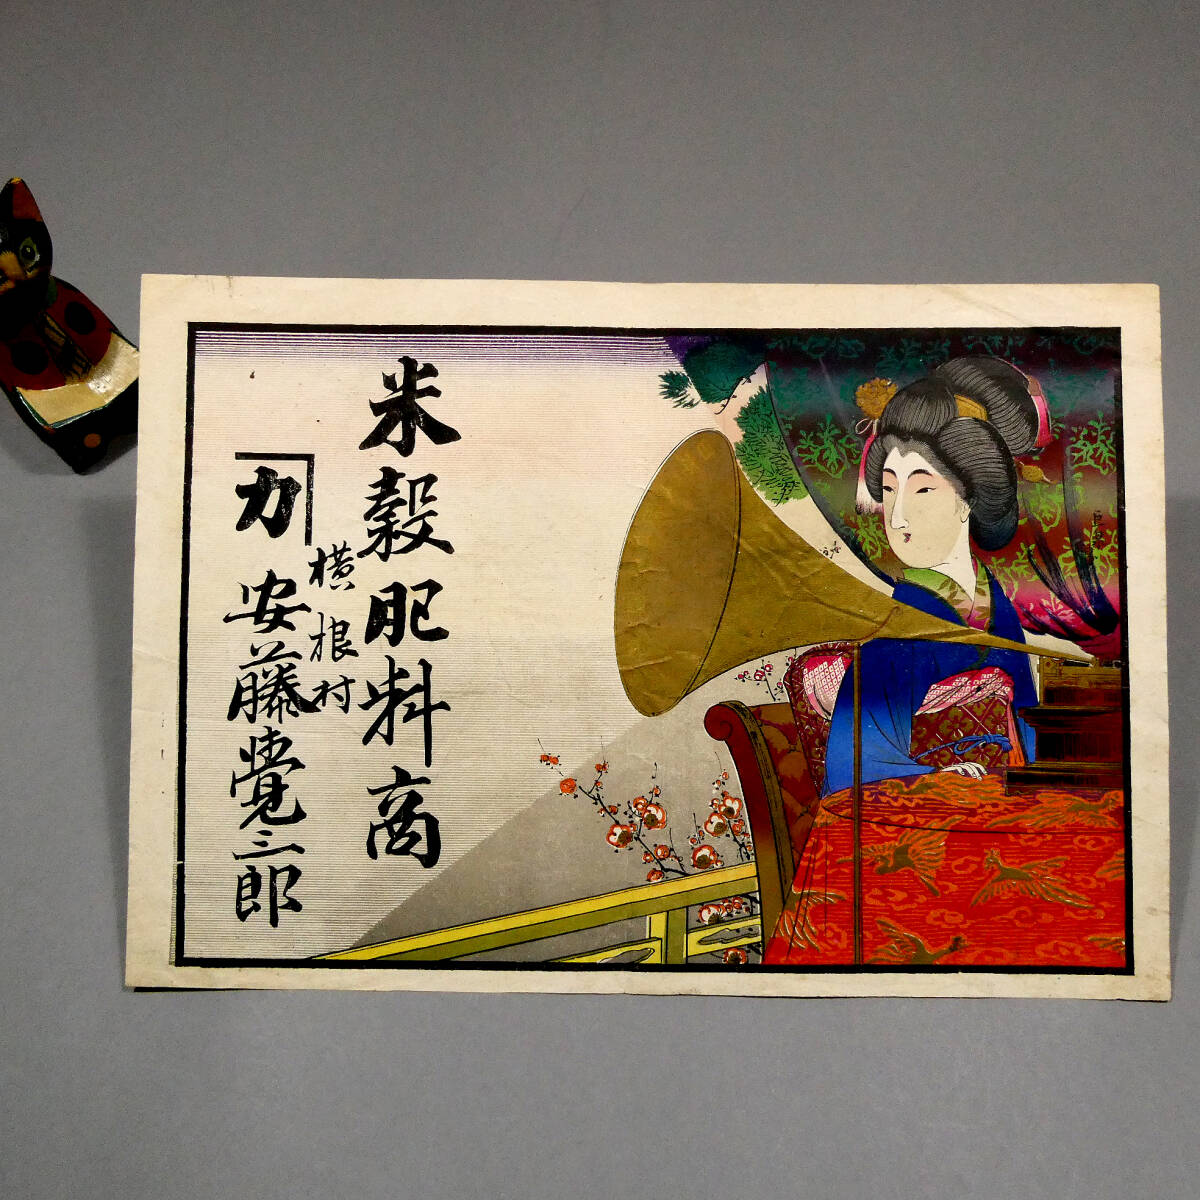 米穀肥料商
横根村
カ
安藤覺三郎